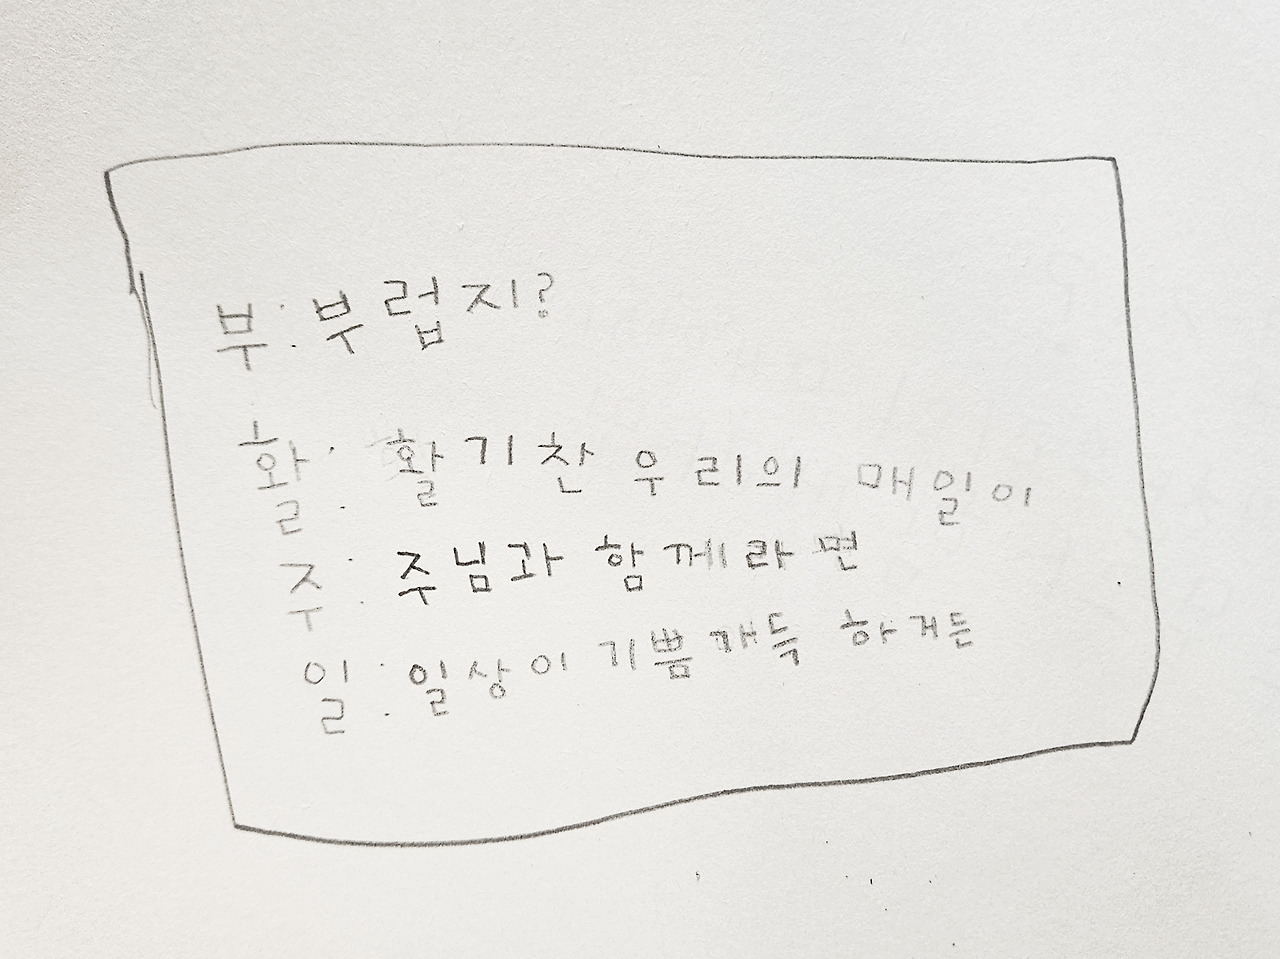 부: 부럽지?
활: 활기찬 우리의 매일이
주: 주님과 함께라면
일: 일상이 기쁨가득 하거든